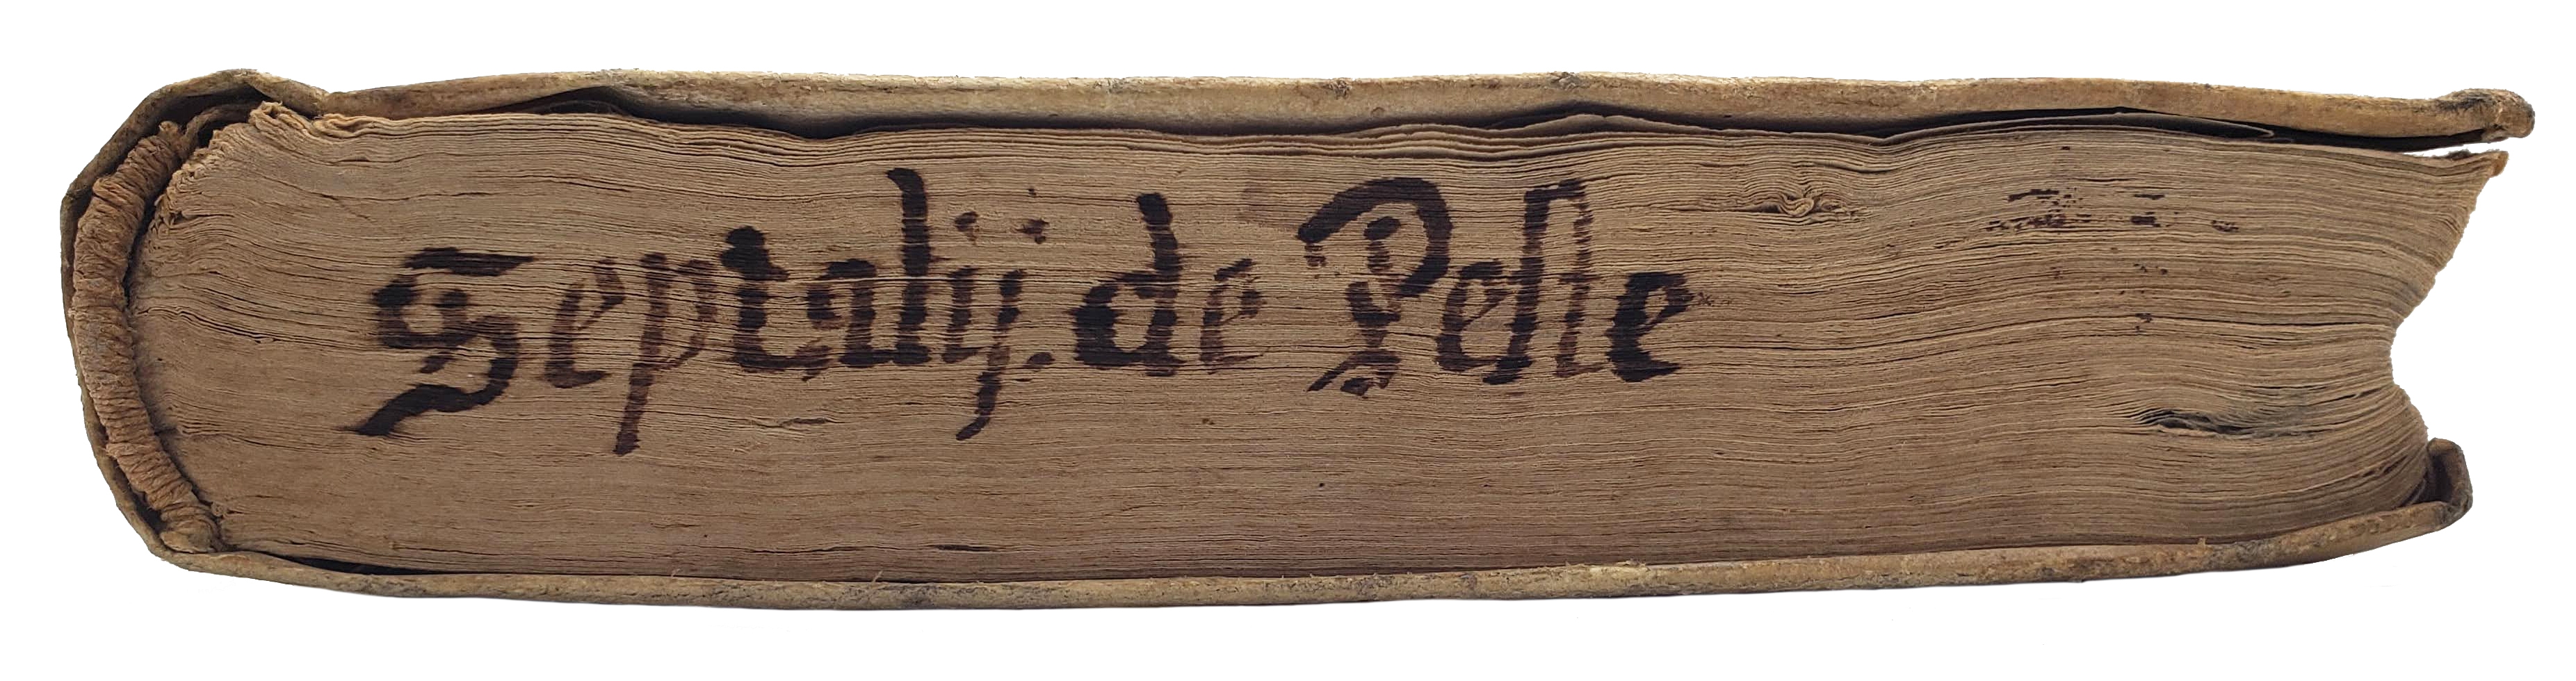 Septalij. de Peste